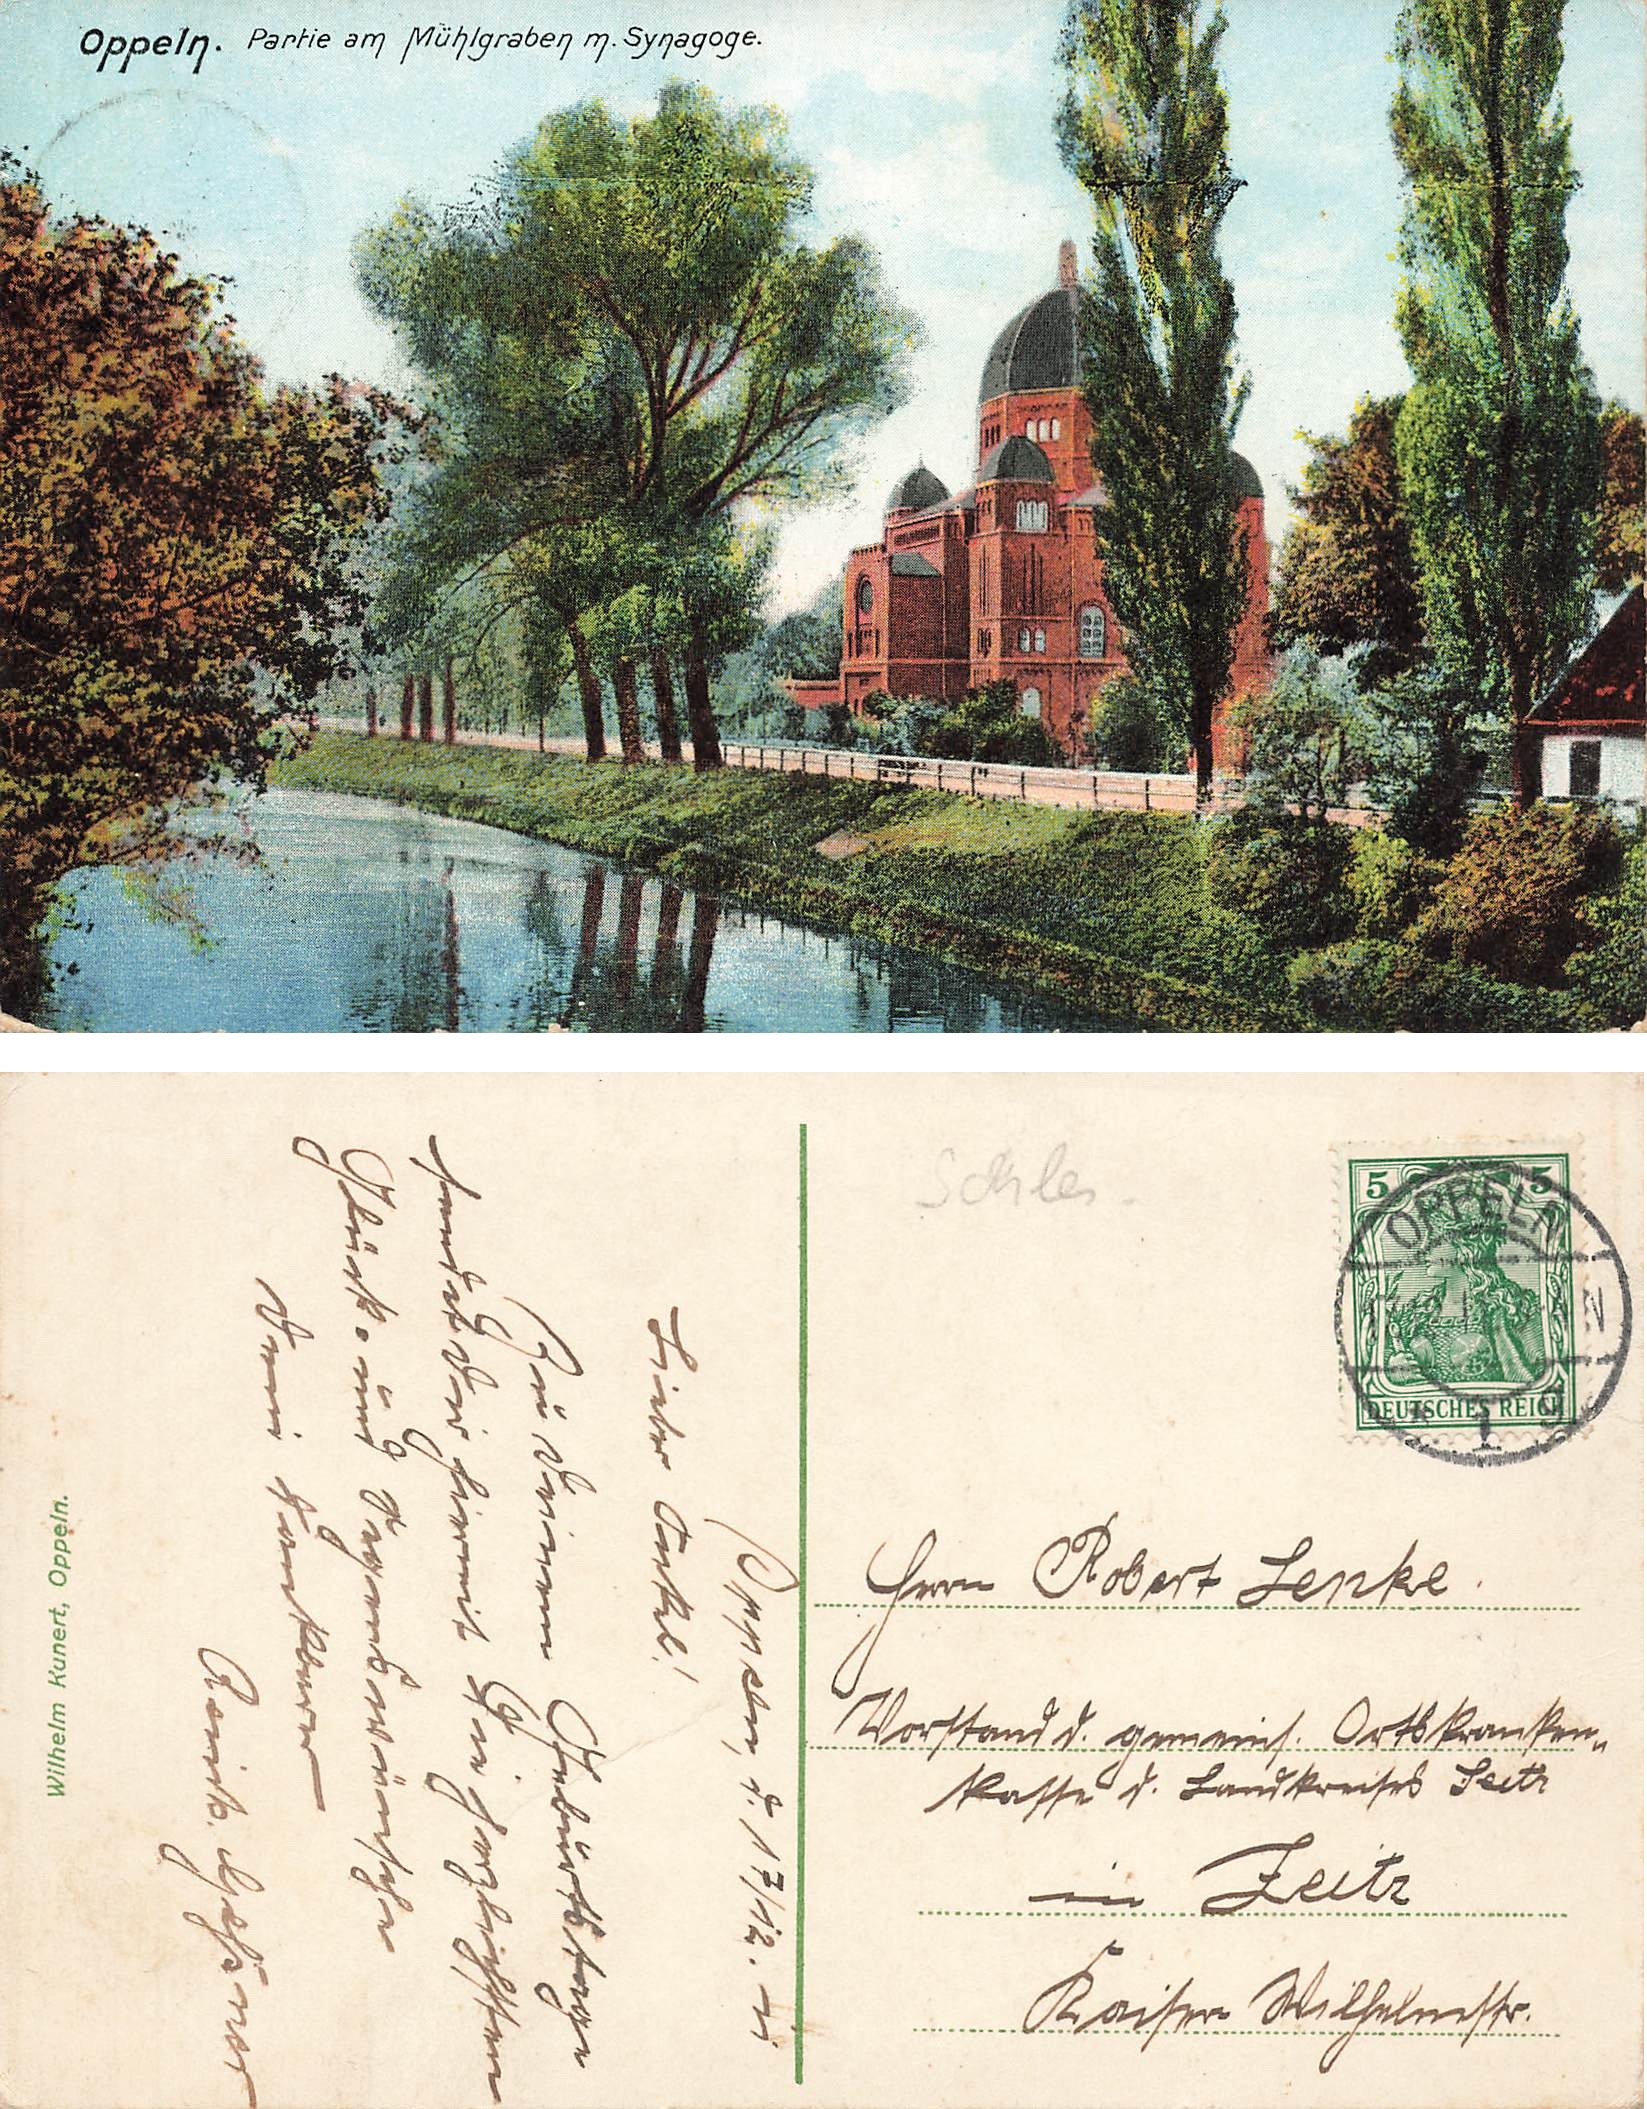 Oppeln. Partie am Mühlgraben m. Synagoge.
Schles.
5 5
OPPELN
DEUTSCHES REICH
Herrn Robert Lenke
Vorstand d. gemeins. Ortskranken-
kasse d. Landkreises Zeitz
in Zeitz
Kaiser Wilhelmstr.
Oppeln, d. 17/12. 11
Lieber Onkel!
Zu Deinem Geburtstage
sendet Dir hiermit die herzlichsten
Glück- und Segenswünsche
Dein dankbarer
Wilhelm Kunert, Oppeln.